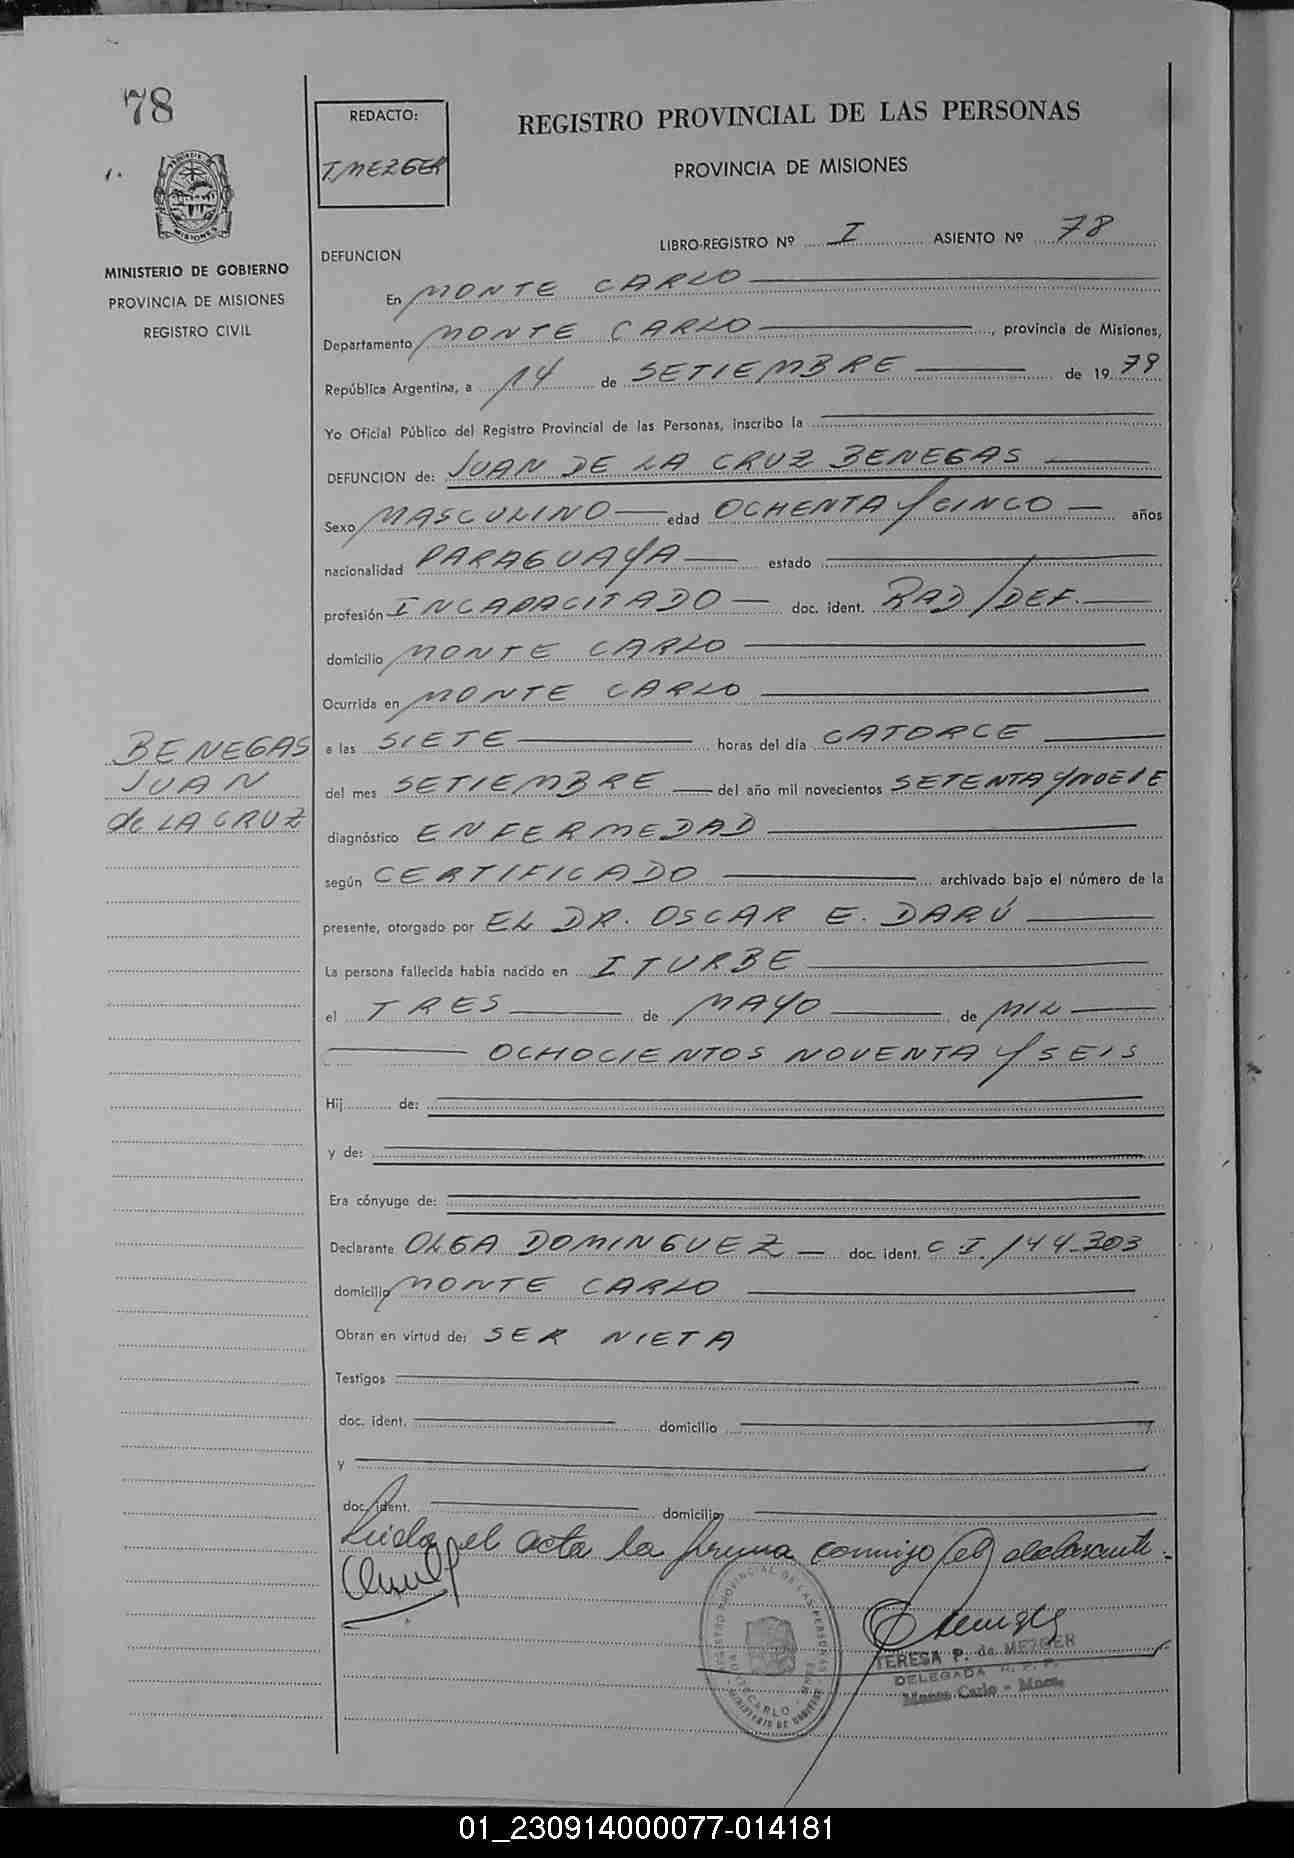 78
REDACTO:
T. MEZGER
REGISTRO PROVINCIAL DE LAS PERSONAS
PROVINCIA DE MISIONES
MISIONES
MINISTERIO DE GOBIERNO
PROVINCIA DE MISIONES
REGISTRO CIVIL
LIBRO-REGISTRO Nº I ASIENTO Nº 78
DEFUNCION
En MONTE CARLO
Departamento MONTE CARLO, provincia de Misiones,
República Argentina, a 14 de SETIEMBRE de 1979
Yo Oficial Público del Registro Provincial de las Personas, inscribo la
DEFUNCION de: JUAN DE LA CRUZ BENEGAS
Sexo MASCULINO edad OCHENTA Y CINCO años
nacionalidad PARAGUAYA estado
profesión INCAPACITADO doc. ident. RAD/DEF.
domicilio MONTE CARLO
Ocurrida en MONTE CARLO
BENEGAS
JUAN
de LA CRUZ
a las SIETE horas del día CATORCE
del mes SETIEMBRE del año mil novecientos SETENTA Y NUEVE
diagnóstico ENFERMEDAD
según CERTIFICADO archivado bajo el número de la
presente, otorgado por EL DR. OSCAR E. DARÚ
La persona fallecida había nacido en ITURBE
el TRES de MAYO de MIL
OCHOCIENTOS NOVENTA Y SEIS
Hij de:
y de:
Era cónyuge de:
Declarante OLGA DOMINGUEZ doc. ident. C I./44.303
domicilio MONTE CARLO
Obran en virtud de: SER NIETA
Testigos
doc. ident. domicilio
y
doc. ident. domicilio
Leida el acta la firma conmigo el declarante.
REGISTRO PROVINCIAL DE LAS PERSONAS
MONTECARLO - MNES
MINISTERIO DE GOBIERNO
TERESA P. de MEZGER
DELEGADA R. P. P.
Monte Carlo - Mnes.
01_230914000077-014181